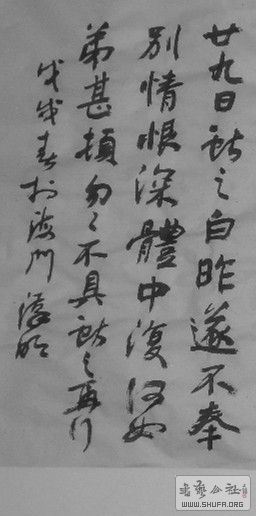 廿九日獻之白昨遂不奉
別情悵深體中復何如
弟甚頓匆々不具獻之再行
戊戌春於海門
書藝公社
WWW.SHUFA.ORG